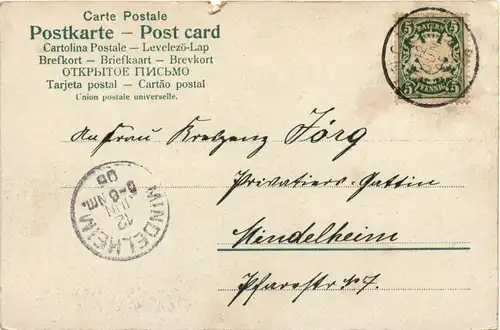 Carte Postale
Postkarte – Post card
Cartolina Postale – Levelező-Lap
Brefkort – Briefkaart – Brevkort
ОТКРЫТОЕ ПИСЬМО
Tarjeta postal – Cartão postal
Union postale universelle.
5 BAYERN 5
5 PFENNIG 5
An Frau Jörg
Privatiers-Gattin
Mindelheim
Pfarrstr. 17.
MINDELHEIM.
12 JUN